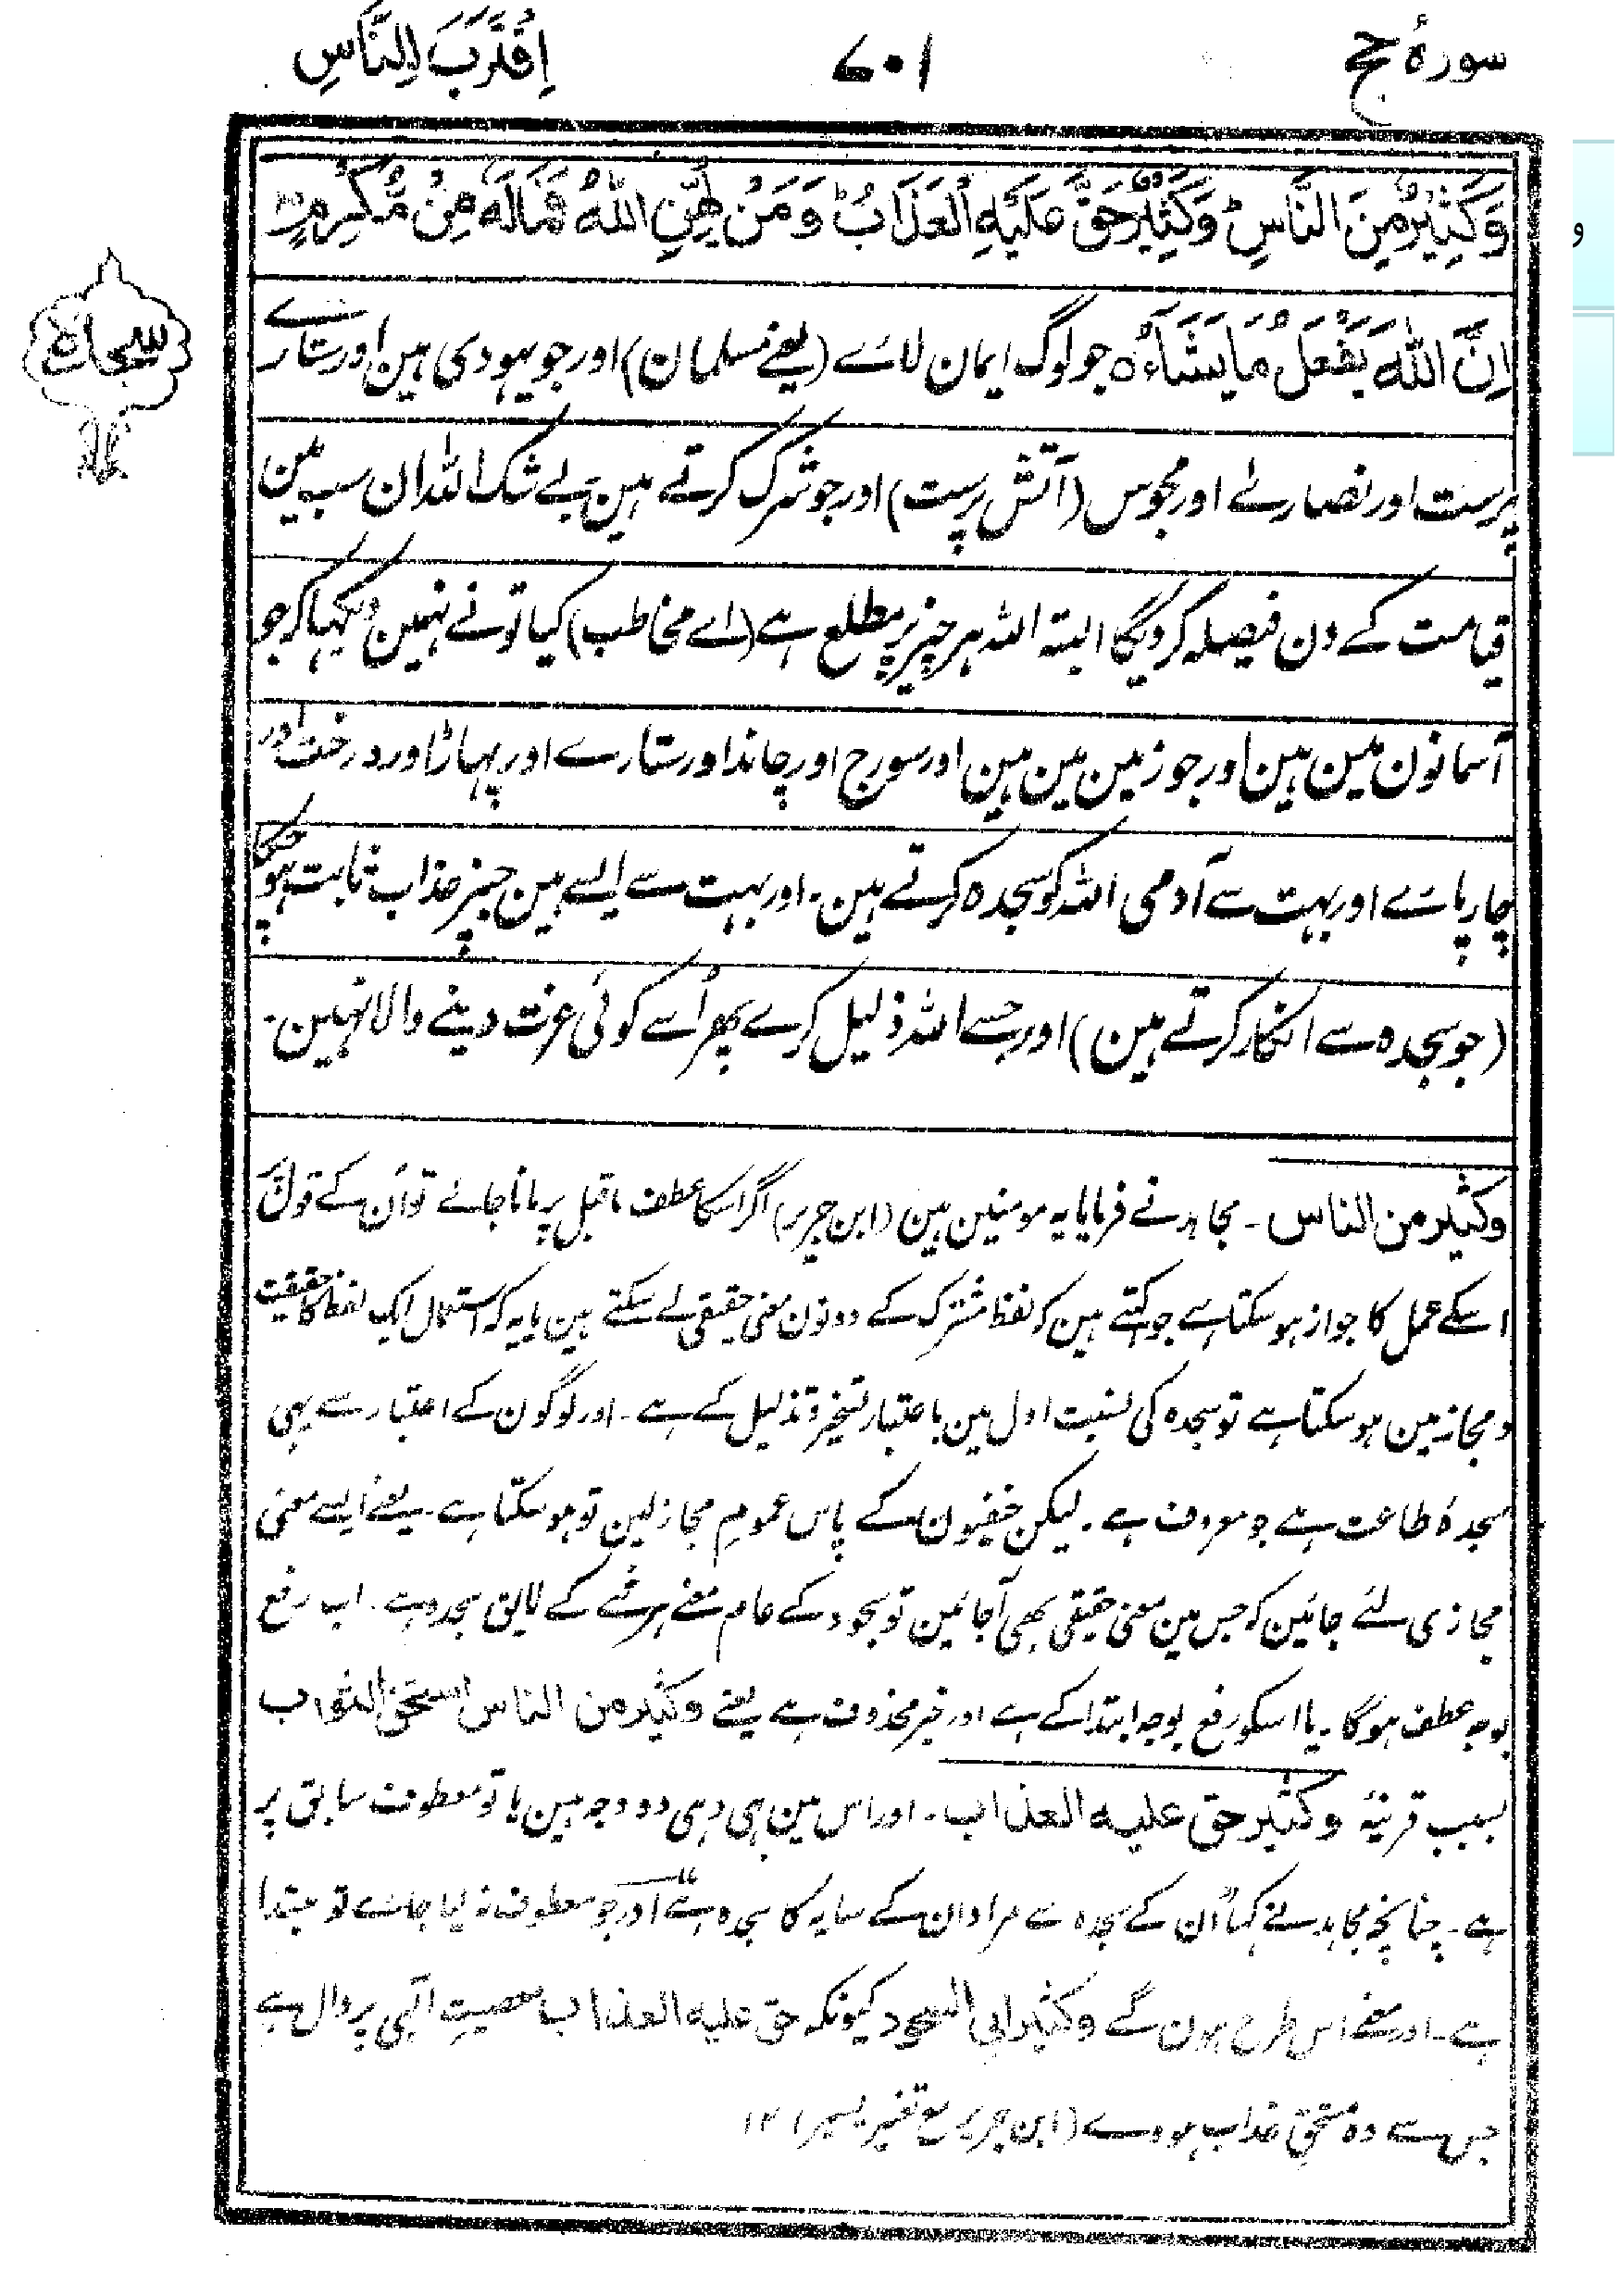 سورۂ حج
۷۰۱
اِقْتَرَبَ لِلنَّاسِ
وَكَثِيْرٌ مِّنَ النَّاسِ ؕ وَكَثِيْرٌ حَقَّ عَلَيْهِ الْعَذَابُ ؕ وَمَنْ يُّهِنِ اللّٰهُ فَمَالَهٗ مِنْ مُّكْرِمٍ ؕ
سجدة
اِنَّ اللّٰهَ يَفْعَلُ مَا يَشَآءُ ۝ جو لوگ ایمان لائے (یعنے مسلمان) اور جو یہودی ہین اور ستارے
پرست اور نصارےٰ اور مجوس (آتش پرست) اور جو شرک کرتے ہین بے شک اللہ ان سب مین
قیامت کے دن فیصلہ کر دیگا البتہ اللہ ہر چیز پر مطلع ہے (اے مخاطب) کیا تو نے نہین دیکہا کہ جو
آسمانون مین ہین اور جو زمین مین ہین اور سورج اور چاند اور ستارے اور پہاڑ اور درخت اور
چارپائے اور بہت سے آدمی اللہ کو سجدہ کرتے ہین۔ اور بہت سے ایسے ہین جنپر عذاب ثابت ہو چکا
(جو سجدہ سے انکار کرتے ہین) اور جسے اللہ ذلیل کرے پھر اُسے کوئی عزت دینے والا نہین۔
وکثیر من الناس ۔ مجاہد نے فرمایا یہ مومنین ہین (ابن جریر) اگر اسکا عطف ماقبل پر مانا جائے تو اُن کے قول پر
اسکے عمل کا جواز ہو سکتا ہے جو کہتے ہین کہ لفظ مشترک کے دونون معنی حقیقی لے سکتے ہین یا یہ کہ استعمال ایک لفظ کا حقیقت
و مجاز مین ہو سکتا ہے تو سجدہ کی نسبت اول مین باعتبار تسخیر و تذلیل کے ہے۔ اور لوگون کے اعتبار سے یہی
سجدۂ طاعت ہے جو معروف ہے۔ لیکن حنفیون کے پاس عموم مجاز لین تو ہو سکتا ہے۔ یعنے ایسے معنی
مجازی لئے جائین کہ جس مین معنی حقیقی بھی آجائین تو سجود کے عام معنے ہر شے کے لایق سجدہ ہے۔ اب رفع
بوجہ عطف ہوگا۔ یا اسکو رفع بوجہ ابتدا کے ہے اور خبر محذوف ہے یعنے وکثیر من الناس استحق الثواب
بسبب قرینۂ وکثیر حق علیہ العذاب ۔ اور اس مین بہی وہی دو وجہ ہین یا تو معطوف سابق پر
ہے۔ چنانچہ مجاہد نے کہا اُن کے سجدہ سے مراد ان کے سایہ کا سجدہ ہے اور جو معطوف نہ لیا جائے تو مبتدا
ہے۔ اور معنے اس طرح ہون گے وکثیر ابی السجود کیونکہ حق علیہ العذاب معصیتِ الٰہی پر دال ہے
جس سے وہ مستحق عذاب ہووے (ابن جریر مع تغیر یسیر) ۱۲